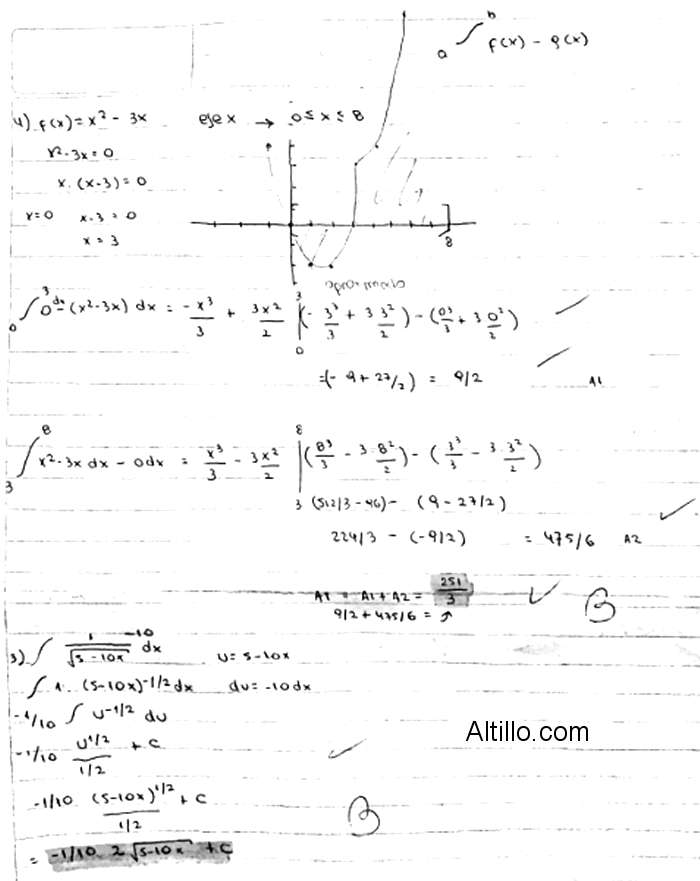 b
a ∫ f(x) - g(x)
4) f(x) = x² - 3x eje x → 0 ≤ x ≤ 8
x² - 3x = 0
x · (x-3) = 0
x = 0 x - 3 = 0
x = 3
8
aproximado
∫₀³ 0 dx - (x² - 3x) dx = -x³/3 + 3x²/2 |₀³ (-3³/3 + 3 3²/2) - (0³/3 + 3 0²/2)
= (-9 + 27/2) = 9/2 A1
∫₃⁸ x² - 3x dx - 0 dx = x³/3 - 3x²/2 |₃⁸ (8³/3 - 3·8²/2) - (3³/3 - 3·3²/2)
(512/3 - 96) - (9 - 27/2)
224/3 - (-9/2) = 475/6 A2
AT = A1 + A2 = 251/3
9/2 + 475/6 = ↗
B
3) ∫ 1/√(5-10x) dx -10 u = 5-10x
∫ 1 · (5-10x)^-1/2 dx du = -10 dx
-1/10 ∫ u^-1/2 du
-1/10 u^1/2 / 1/2 + C
Altillo.com
-1/10 (5-10x)^1/2 / 1/2 + C
B
= -1/10 · 2 √(5-10x) + C